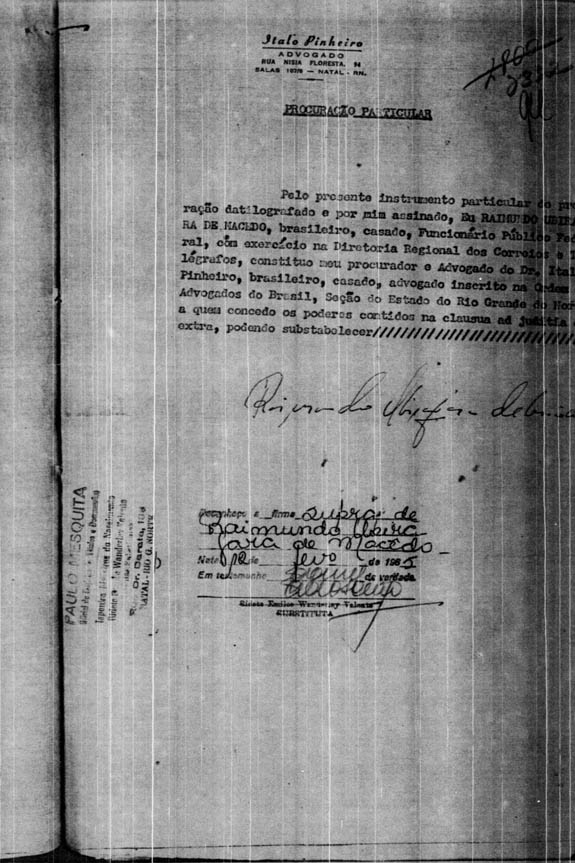 Italo Pinheiro
ADVOGADO
RUA NISIA FLORESTA, 94
SALAS — NATAL - RN.
PROCURAÇÃO PARTICULAR
Pelo presente instrumento particular de
ração datilografado e por mim assinado, Eu RAIMUNDO
RA DE MACEDO, brasileiro, casado, Funcionário Público Fed
ral, com exercício na Diretoria Regional dos Correios e T
légrafos, constituo meu procurador e Advogado do Dr. Ital
Pinheiro, brasileiro, casado, advogado inscrito na Ordem
Advogados do Brasil, Seção do Estado do Rio Grande do Nor
a quem concedo os poderes contidos na clausua ad juditia
extra, podendo substabelecer/////////////////////////
Reconheço a firma supra de
Raimundo Ubira
jara de Macêdo
Natal 12 de fev de 1965
Em testemunho da verdade
Wanderley Valente
SUBSTITUTA
PAULO MESQUITA
Wanderley Valente
Rua Dr. Barata,
NATAL - RIO G. NORTE